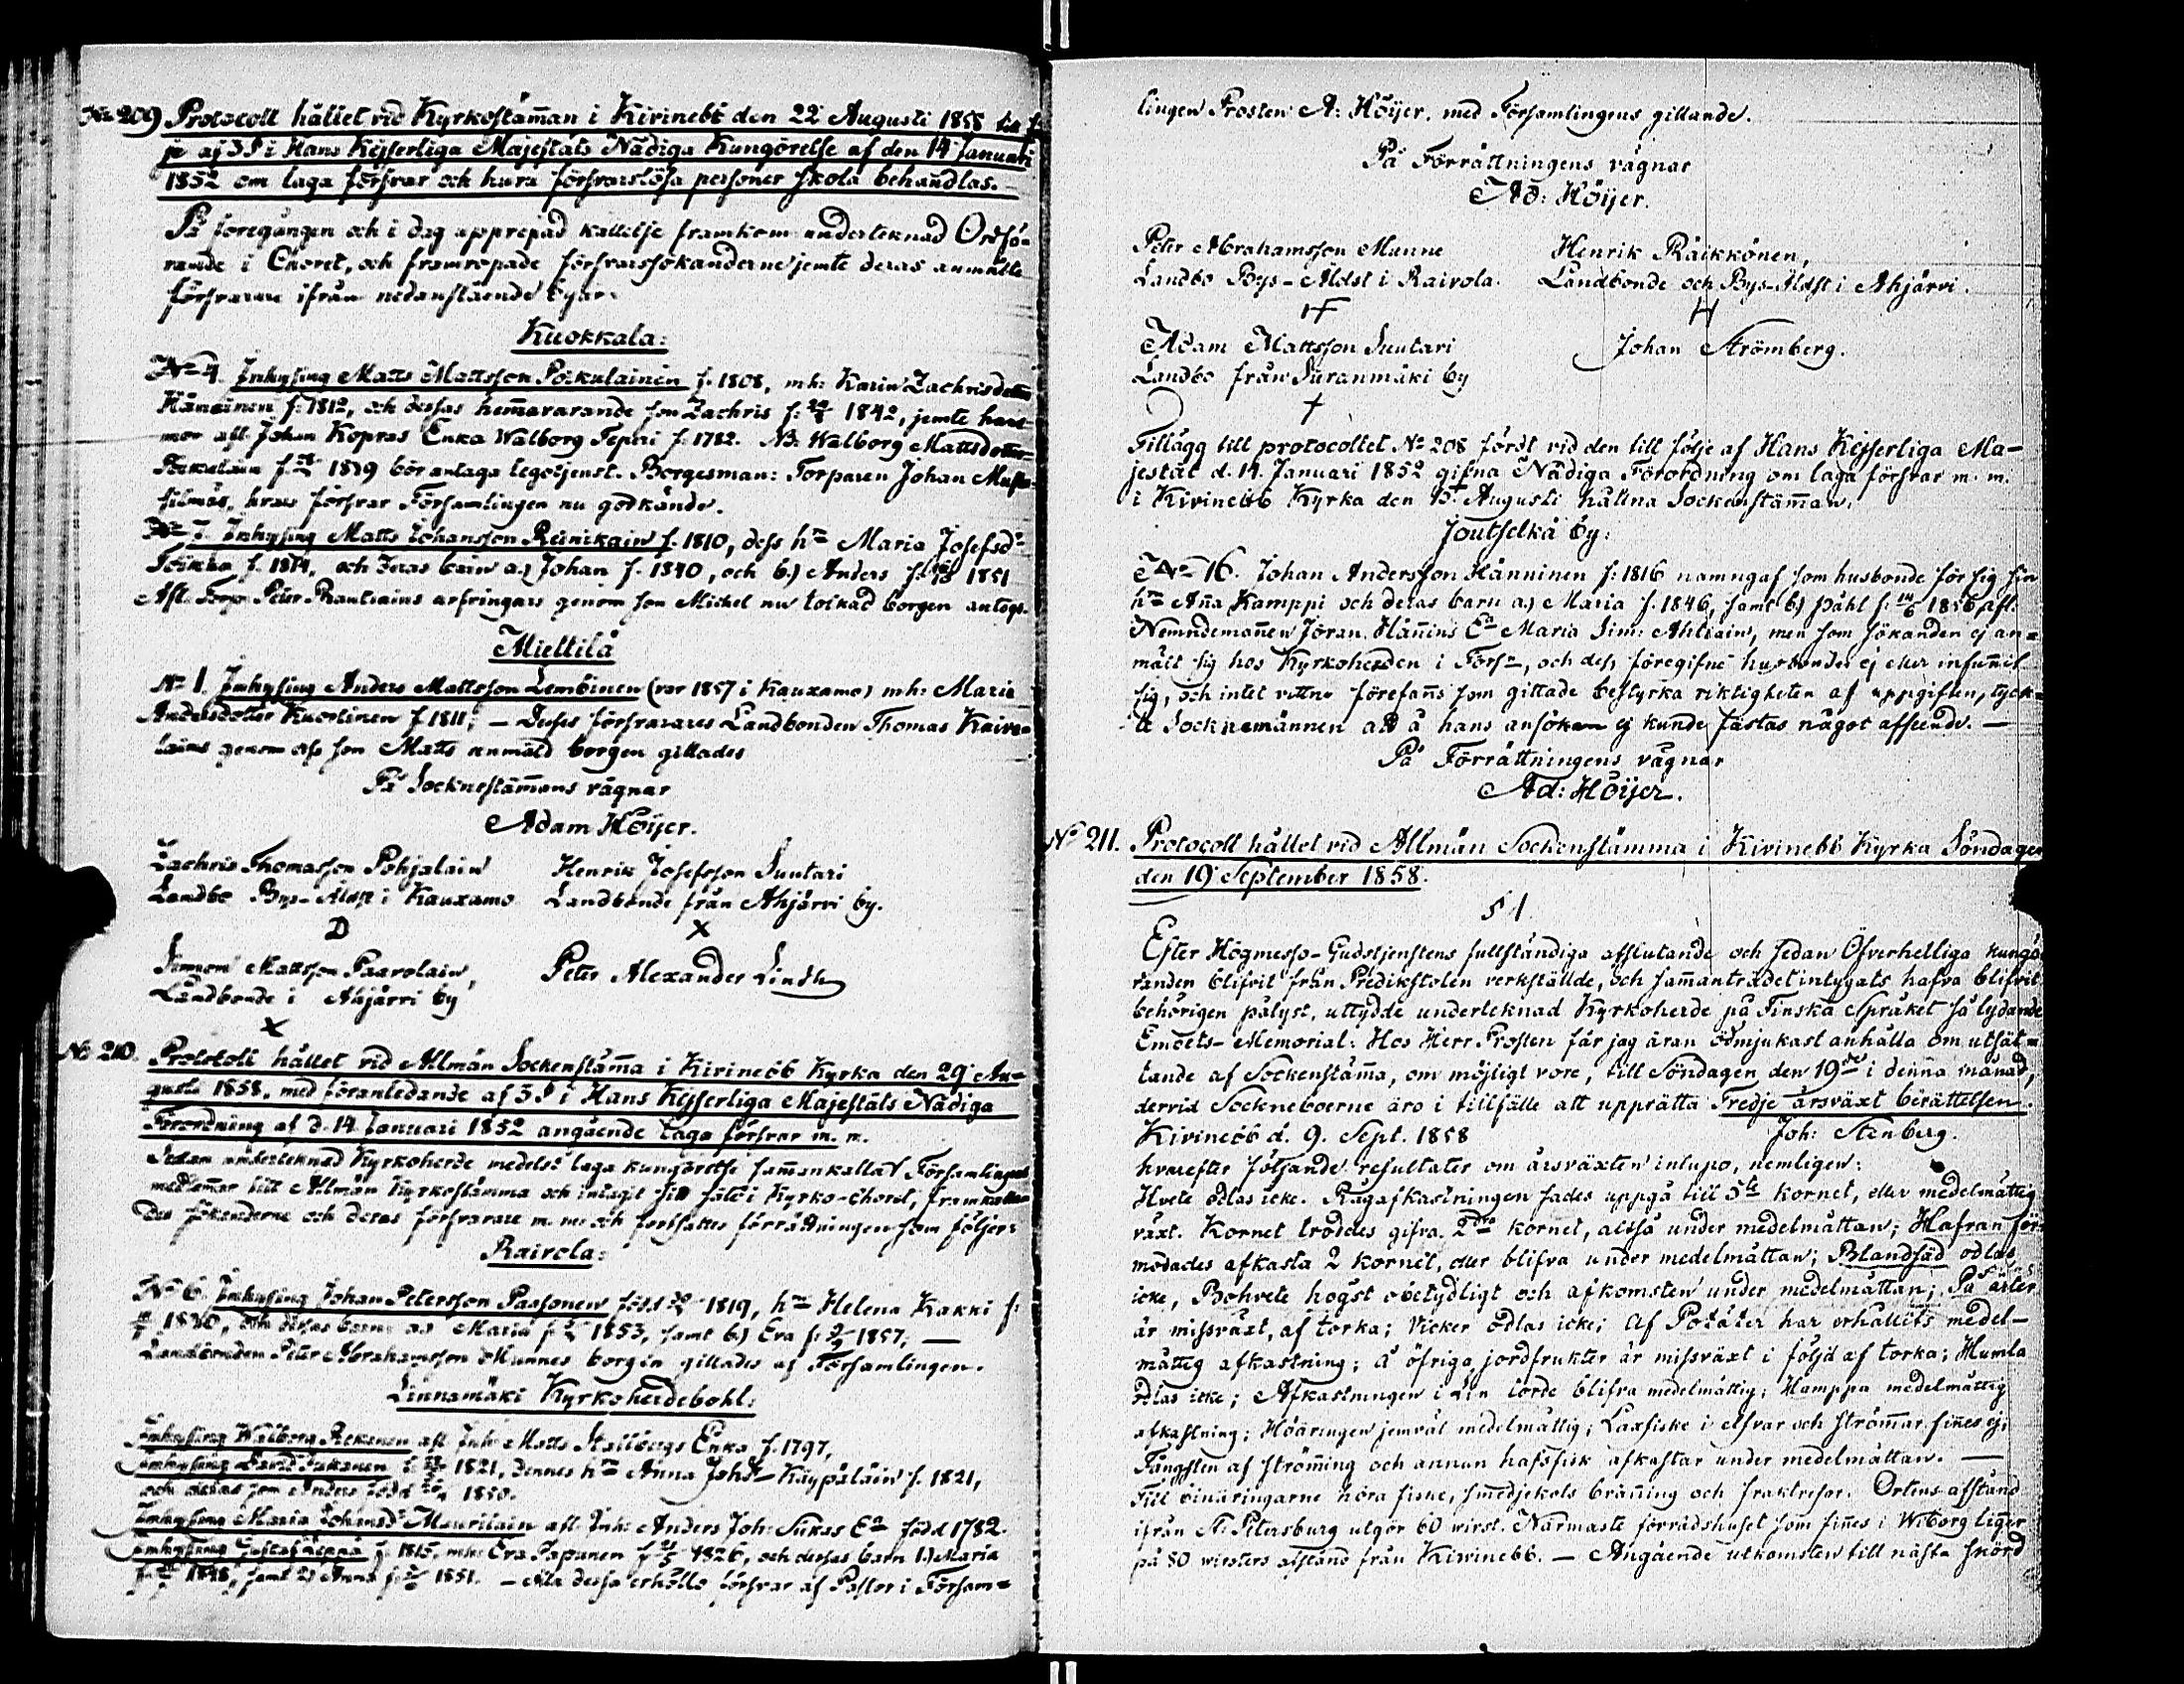 No 209 Protocoll hållet vid Kyrkostämman i Kivinebb den 22 Augusti 1858 till föl-
je af 3 § i Hans Kejserliga Majestäts Nådiga Kungörelse af den 14 Januari
1852 om laga försvar och huru försvarslösa personer skola behandlas.
På föregången och i dag upprepad kallelse framkom undertecknad Ordfö-
rande i Choret, och framropade försvarssökanderne jemte deras anmälte
försvarare ifrån nedanstående byar.
Kuokkala:
No 4. Inhysing Matts Mattsson Poikulainen f. 1808, m.h: Karin Zachrisdotter
Hänninen f. 1812, och dessas hemmavarande son Zachris f. 1842, jemte hans
mor afl. Johan Kopras Enka Walborg Tepari f. 1782. NB. Walborg Mattsdotter
f. 1839 bör antaga legotjenst. Borgesman: Torparen Johan Musta-
hvars försvar Församlingen nu godkände.
No 7. Inhysing Matts Johansson Reinikain f. 1810, dess hu Maria Josefsdr
f. 1814, och deras barn a.) Johan f. 1840, och b.) Anders f. 1851
Afl. Torp. Peter Rautiains arfvingars genom son Michel nu tolkad borgen antogs.
Miettilä
No 1. Inhysing Anders Mattsson Lembinen (var 1857 i Kauxamo) m.h: Maria
Andersdotter Kuortinen f. 1811; — Dessas försvarares Landbonden Thomas Kaive-
lains genom dess son Matts anmäld borgen gillades
På Sockenstämmans vägnar
Adam Höijer.
Zachris Thomasson Pohjalain Henrik Josefsson Suutari
Landbo Bys-Äldst i Kauxamo Landbonde från Ahjärvi by.
D X
Simon Mattsson Paavolain, Peter Alexander Lindh
Landbonde i Ahjärvi by
X
No 210. Protocoll hållet vid Allmän Sockenstämma i Kivinebb Kyrka den 29 Au-
gusti 1858, med föranledande af 3 § i Hans Kejserliga Majestäts Nådiga
Förordning af d. 14 Januari 1852 angående laga försvar m. m.
Sedan undertecknad Kyrkoherde medelst laga kungörelse sammankallat Församlingens
medlemmar till Allmän Kyrkostämma och intagit sitt säte i Kyrko-choret, framkalla-
des sökanderne och deras försvarare m. m. och fortsattes förrättningen som följer:
Raivola:
No 6. Inhysing Johan Petersson Passonen född 1819, hu Helena Kakki f.
1830, och dessas barn a.) Maria f. 1853, samt b.) Eva f. 1857; —
Landbonden Peter Abrahamsson Munnes borgen gillades af Församlingen.
Linnamäki Kyrkoherdebohl:
Inhysing Walborg Pekanen afl. Inh. Matts Stallbergs Enka f. 1797,
Inhysing David Pukanen f. 1821, dennes hu Anna Johdr Käypäläin f. 1821,
och deras son Anders född 1850.
Inhysing Maria Johansdr Maurilain afl. Inh: Anders Joh: Sukas Ea född 1782.
Inhysing Gustaf Leppä f. 1815, m.h: Eva Papunen f. 1826, och dessas barn 1.) Maria
f. 1848, samt 2) Anna f. 1851. — Alla dessa erhöllo försvar af Pastor i Försam=
lingen Prosten A: Höijer, med Församlingens gillande.
På Förrättningens vägnar
Ad: Höijer.
Peter Abrahamsson Munne Henrik Räikkönen,
Landbo Bys-Äldst i Raivola. Landbonde och Bys-Äldst i Ahjärvi.
Adam Mattsson Suutari Johan Strömberg.
Landbo från Suranmäki by
Tillägg till protocollet No 208 fördt vid den till följe af Hans Kejserliga Ma-
jestät d. 14. Januari 1852 gifna Nådiga Förordning om laga försvar m. m.
i Kivinebb Kyrka den 15 Augusti hållna Sockenstämman.
Joutselkä by:
No 16. Johan Andersson Hänninen f. 1816 namngaf som husbonde för sig sin
hu Anna Kamppi och deras barn a.) Maria f. 1846, samt b) Påhl f. 14/6 1856 afl.
Nemndemannen Jöran Hännins Ea Maria Sim: Ahliain, men som sökanden ej an=
mält sig hos Kyrkoherden i Förs., och dess föregifne husbonde ej eller infunnit
sig, och intet vittne förefanns som gittade bestyrka riktigheten af uppgiften, tyck=
te Socknemännen att å hans ansökan ej kunde fästas något afseende. —
På Förrättningens vägnar
Ad: Höijer.
No 211. Protocoll hållet vid Allmän Sockenstämma i Kivinebb Kyrka Söndagen
den 19 September 1858.
§ 1
Efter Högmesso-Gudstjenstens fullständiga afslutande och sedan Öfverhetliga kungö-
randen blifvit från Predikstolen verkställde, och sammanträdet intygats hafva blifvit
behörigen pålyst, uttydde undertecknad Kyrkoherde på Finska Språket så lydande
Embets-Memorial: Hos Herr Prosten får jag äran ödmjukast anhålla om utsät-
tande af Sockenstämma, om möjligt vore, till Söndagen den 19de i denna månad,
dervid Sockneboerne äro i tillfälle att upprätta Tredje årsväxt berättelsen.
Kivinebb d. 9. Sept. 1858 Joh: Stenberg.
hvarefter följande resultater om årsväxten inlupo, nemligen:
Hvete odlas icke. Rågafkastningen sades uppgå till 5te kornet, eller medelmåttig
växt. Kornet troddes gifva 2dra kornet, altså under medelmåttan; Hafran för-
modades afkasta 2 kornet, eller blifva under medelmåttan; Blandsäd odlas
icke, Bohvete högst obetydligt och afkomsten under medelmåttan; På ärter
är missväxt, af torka; Vicker odlas icke; Af Potäter har erhållits medel-
måttig afkastning; å öfriga jordfrukter är missväxt i följd af torka; Humla
odlas icke; Afkastningen i Lin torde blifva medelmåttig; Hamppa medelmåttig
afkastning; Höäringen jemväl medelmåttig; Laxfiske i elfvar och strömmar finnes ej;
Fångsten af strömming och annan hafsfisk afkastar under medelmåttan. —
Till binäringarne höra fiske, smedjekols bränning och fraktresor. Ortens afstånd
ifrån St. Petersburg utgör 60 wirst. Närmaste förrådshuset som finnes i Wiborg ligger
på 80 wirsters afstånd från Kivinebb. — Angående utkomsten till nästa skörd